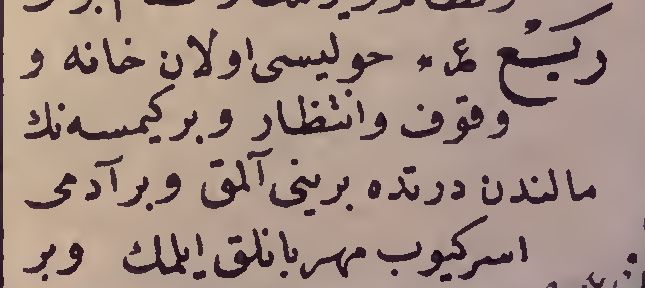 ربع ع * حوليسی اولان خانه و
وقوف وانتظار وبر كيمسه نك
مالندن درتده برينی آلمق وبر آدمی
اسركيوب مهربانلق ايلمك وبر